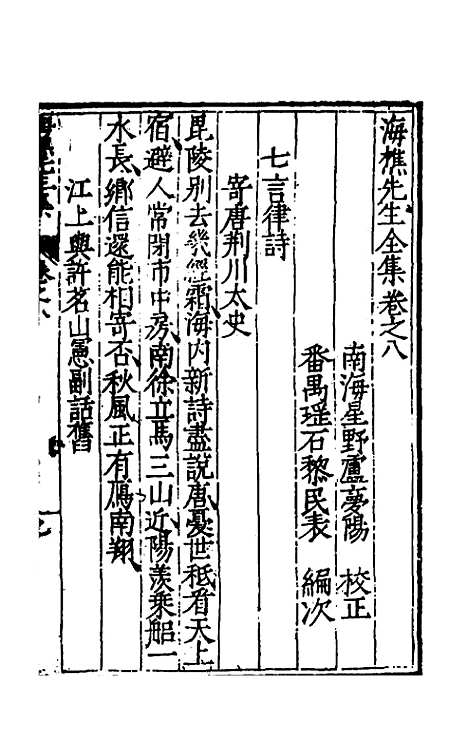 海樵先生全集卷之八
南海星野盧夢陽　校正
番禺瑤石黎民表　編次
七言律詩
寄唐荆川太史
毘陵别去幾經霜海内新詩盡說唐憂世秪看天上
宿避人常閉市中房南徐立馬三山近陽羡乘船一
水長鄉信還能相寄否秋風正有鴈南翔
江上與許茗山憲副話舊